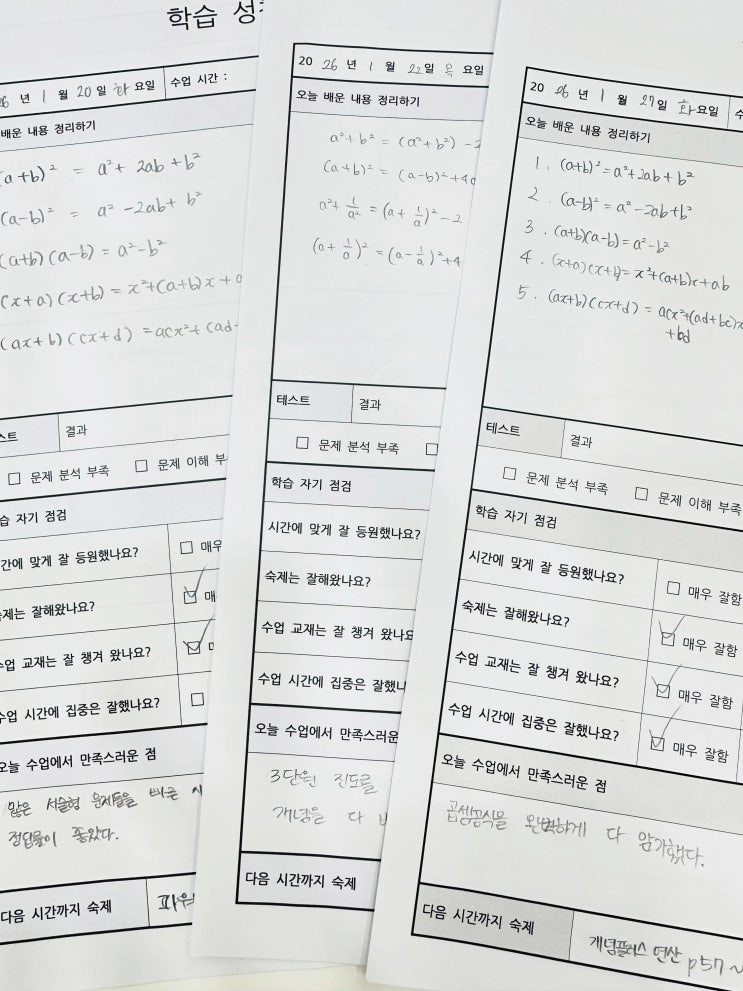 학습 성
26 년 1 월 20 일 화 요일 수업 시간 :
배운 내용 정리하기
(a+b)² = a²+ 2ab +b²
(a-b)² = a² -2ab+ b²
(a+b)(a-b) = a²-b²
(x+a)(x+b) = x²+(a+b)x+a
(ax+b)(cx+d) =acx²+(ad
스트 결과
□ 문제 분석 부족 □ 문제 이해 부
습 자기 점검
간에 맞게 잘 등원했나요? □ 매우
제는 잘해왔나요? ☑ 매
업 교재는 잘 챙겨 왔나요? ☑
업 시간에 집중은 잘했나요? □
오늘 수업에서 만족스러운 점
많은 서술형 문제들을 빠른 시
정답률이 좋았다.
다음 시간까지 숙제
20 26 년 1 월 22일 목 요일
오늘 배운 내용 정리하기
a²+b² = (a²+b²) -2
(a+b)² = (a-b)²+4a
a²+ 1/a² = (a+ 1/a)²-2
(a+ 1/a)² =(a- 1/a)²+4
테스트 결과
□ 문제 분석 부족 □
학습 자기 점검
시간에 맞게 잘 등원했나요?
숙제는 잘해왔나요?
수업 교재는 잘 챙겨 왔나요
수업 시간에 집중은 잘했나
오늘 수업에서 만족스러운
3단원 진도를
개념을 다
다음 시간까지 숙제
20 26 년 1 월 27일 화요일 수
오늘 배운 내용 정리하기
1. (a+b)²=a²+2ab+b²
2. (a-b)²=a²-2ab+b²
3. (a+b)(a-b)=a²-b²
4. (x+a)(x+b)=x²+(a+b)x+ab
5. (ax+b)(cx+d) = acx²+(ad+bc)x
+bd
테스트 결과
□ 문제 분석 부족 □ 문제 이해 부족
학습 자기 점검
시간에 맞게 잘 등원했나요? □ 매우 잘함
숙제는 잘해왔나요? ☑ 매우 잘함
수업 교재는 잘 챙겨 왔나요? ☑ 매우 잘함
수업 시간에 집중은 잘했나요? ☑ 매우 잘함
오늘 수업에서 만족스러운 점
곱셈공식을 완벽하게 다 암기했다.
다음 시간까지 숙제 개념플러스 연산 p57~